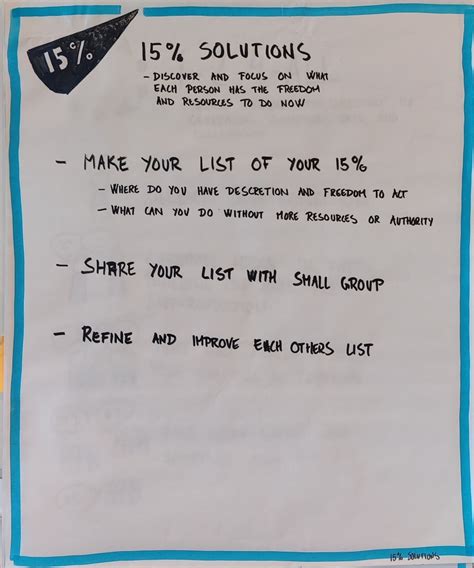 15%
15% SOLUTIONS
- DISCOVER AND FOCUS ON WHAT
EACH PERSON HAS THE FREEDOM
AND RESOURCES TO DO NOW
- MAKE YOUR LIST OF YOUR 15%
- WHERE DO YOU HAVE DESCRETION AND FREEDOM TO ACT
- WHAT CAN YOU DO WITHOUT MORE RESOURCES OR AUTHORITY
- SHARE YOUR LIST WITH SMALL GROUP
- REFINE AND IMPROVE EACH OTHERS LIST
15% SOLUTIONS